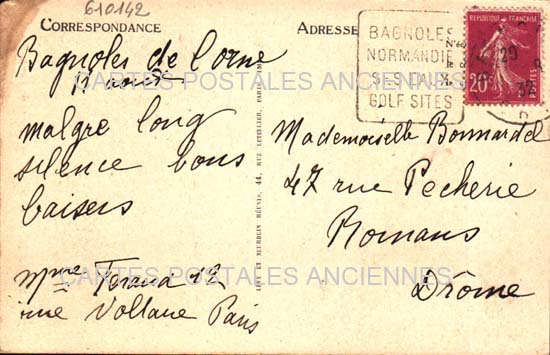 610142
CORRESPONDANCE
ADRESSE
BAGNOLES
NORMANDIE
SES EAUX
GOLF SITES
REPUBLIQUE FRANÇAISE
20
POSTES
29
Bagnoles de l'orne
malgre long
silence bons
baisers
Mme Feraud 12
rue Vollane Paris
Mademoiselle Bonnardel
47 rue Pecherie
Romans
Drôme
CARTES POSTALES ANCIENNES
CARTES POSTALES ANCIENNES
LEVY ET NEURDEIN RÉUNIS, 44, RUE LETELLIER, PARIS